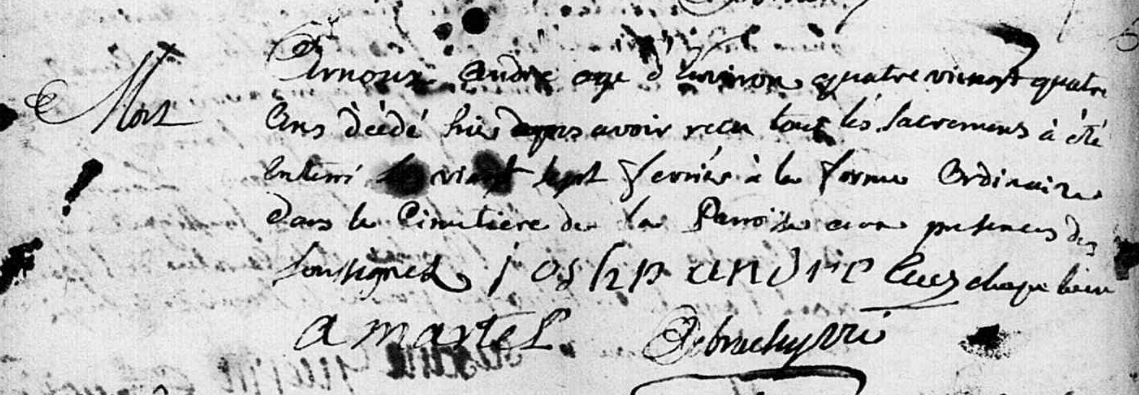 Mort
Arnoux André agé d'Environ quatre vienght quatre
Ans dècdé hier apres avoir recu tout lés Sacremens à été
Enterré le vingt sept fevrier à la forme Ordinaire
Dans le Cimetiere de la Parroisse aux presences des
Soussignés joshp andre
a martel